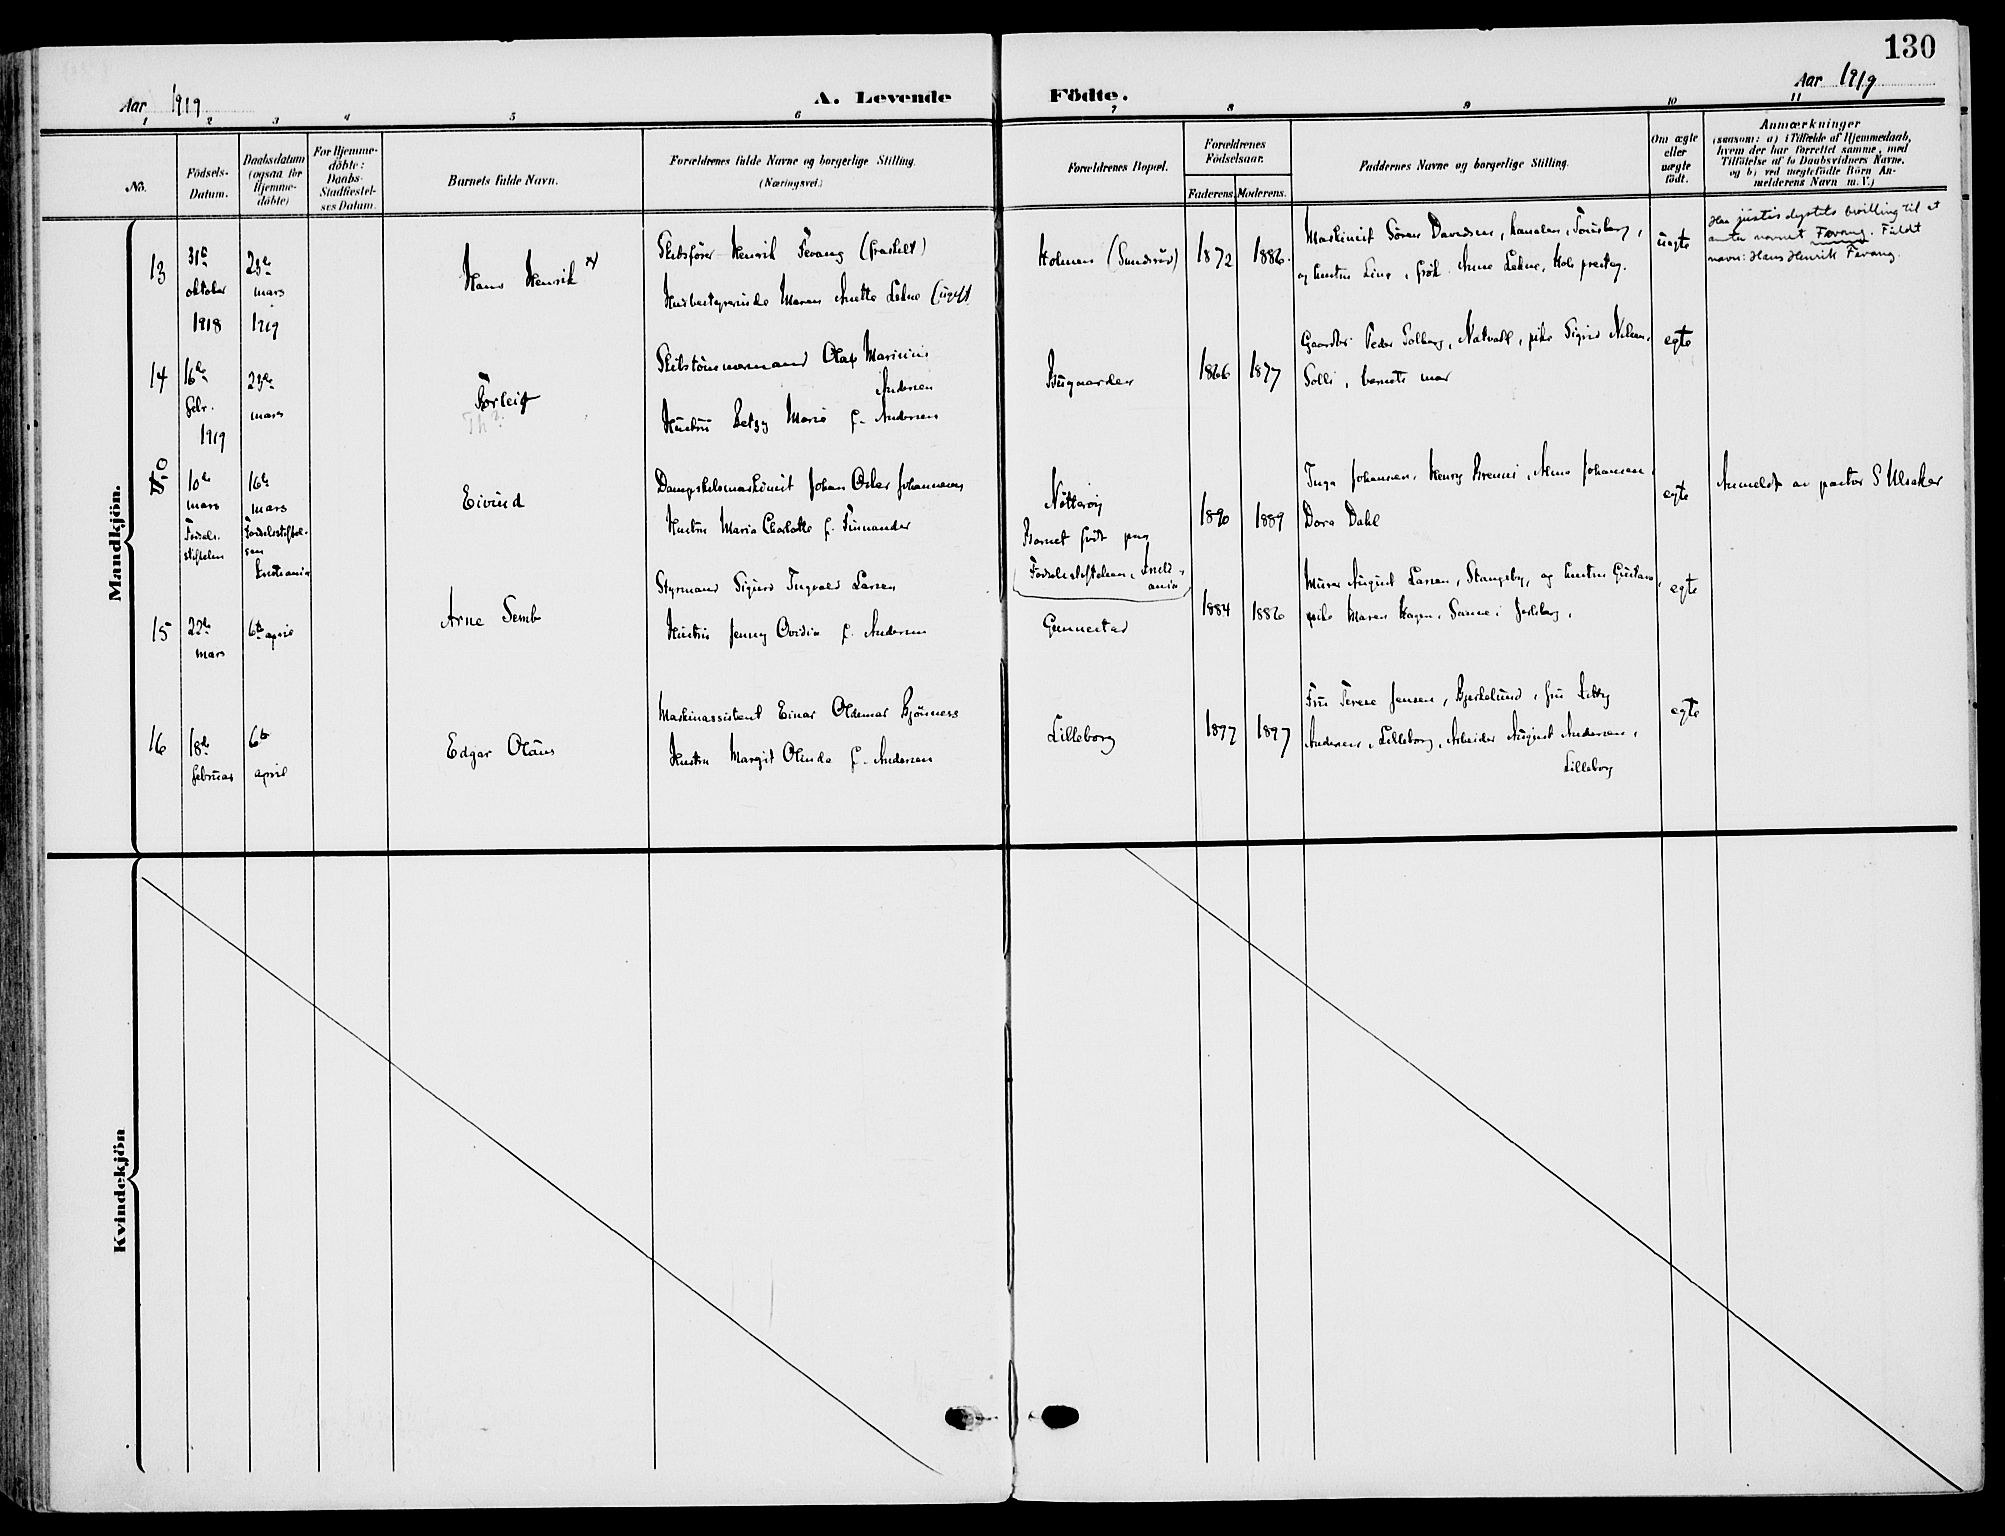 130
Aar 1919
A. Levende Födte.
Aar 1919
1 2 3 4 5 6 7 8 9 10 11
No.
Födsels-
Datum.
Daabsdatum
(ogsaa for
Hjemme-
döbte)
For Hjemme-
döbte:
Daabs-
Stadfæstel-
ses Datum.
Barnets fulde Navn.
Forældrenes fulde Navne og borgerlige Stilling.
(Næringsvei.)
Forældrenes Bopæl.
Forældrenes
Födselsaar.
Faderens. Moderens.
Faddernes Navne og borgerlige Stilling.
Om ægte
eller
uægte
födt.
Anmærkninger
(saasom: a) i Tilfælde af Hjemmedaab,
hvem der har forrettet samme, med
Tilföielse af to Daabsvidners Navne,
og b) ved uægtefödte Börn An-
melderens Navn m. V.)
Mandkjön.
13
31te
oktober
1918
23de
mars
1919
Hans Henrik x)
Skibsfører Henrik Fevang (fraskilt)
Husbestyrerinde Maren Anette Lekne (ugift
Holmen (Sundrød)
1872 1886
Maskinist Søren Davidsen, Kanalen, Tønsberg,
og hustru Line, frök. Anne Lekne, Hols prestegj.
uegte
Har justisdeptets bevilling til at
anta navnet Fevang. Fuldt
navn: Hans Henrik Fevang.
14
16de
febr.
1919
23de
mars
Torleif
Th?
Skibstömmermand Olaf Marinius
Andersen
Hustru Betzy Marie f. Andersen
Bugaarden
1866 1877
Gaardbr. Peder Solberg, Natvall, pike Sigrid Nilsen,
Solli, barnets mor
egte
10de
mars
Fødsels-
stiftelsen
16de
mars
Fødselsstiftel-
sen
Kristiania
Eivind
Dampskibsmaskinist Johan Oskar Johannesen
Hustru Marie Charlotte f. Finnander
Nötteröy
Barnet født paa
Fødselsstiftelsen, Kristi-
ania
1890 1889
Inga Johansen, Henry Brenni, Alma Johansen,
Dora Dahl
egte
Anmeldt av pastor S Ulsaker
15
22de
mars
6te april
Arne Sembo
Styrmand Sigurd Ingvald Larsen
Hustru Jenny Ovidia f. Andersen
Gunnestad
1884 1886
Murer August Larsen, Stangeby, og hustru Gustava,
pike Maren Hagen, Sanne i Jarlsberg,
egte
16
18de
februar
6te
april
Edgar Olaus
Maskinassistent Einar Oldemar Bjönness
Hustru Margit Olinde f. Andersen
Lilleborg
1897 1897
Fru Terese Jensen, Bjerkelund, fru Kitty
Andersen, Lilleborg, Arbeider August Andersen,
Lilleborg
egte
Kvindekjön